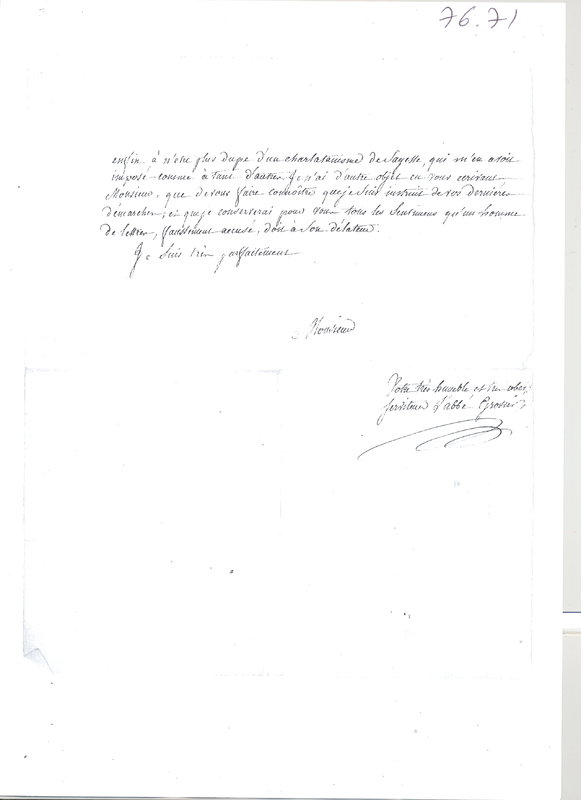 76.71
enfin à n'être plus dupe d'un charlatanisme de Sagesse, qui m'en avoit
imposé comme à tant d'autres. Je n'ai d'autre objet en vous ecrivant
Monsieur, que de vous faire connoître que je suis instruit de vos dernieres
démarches; et que je conserverai pour vous tous les Sentimens qu'un homme
de lettres, faussement accusé, doit à Son délateur.
Je Suis très parfaitement
Monsieur
Votre très humble et très obéi.
serviteur L'abbé Grosier